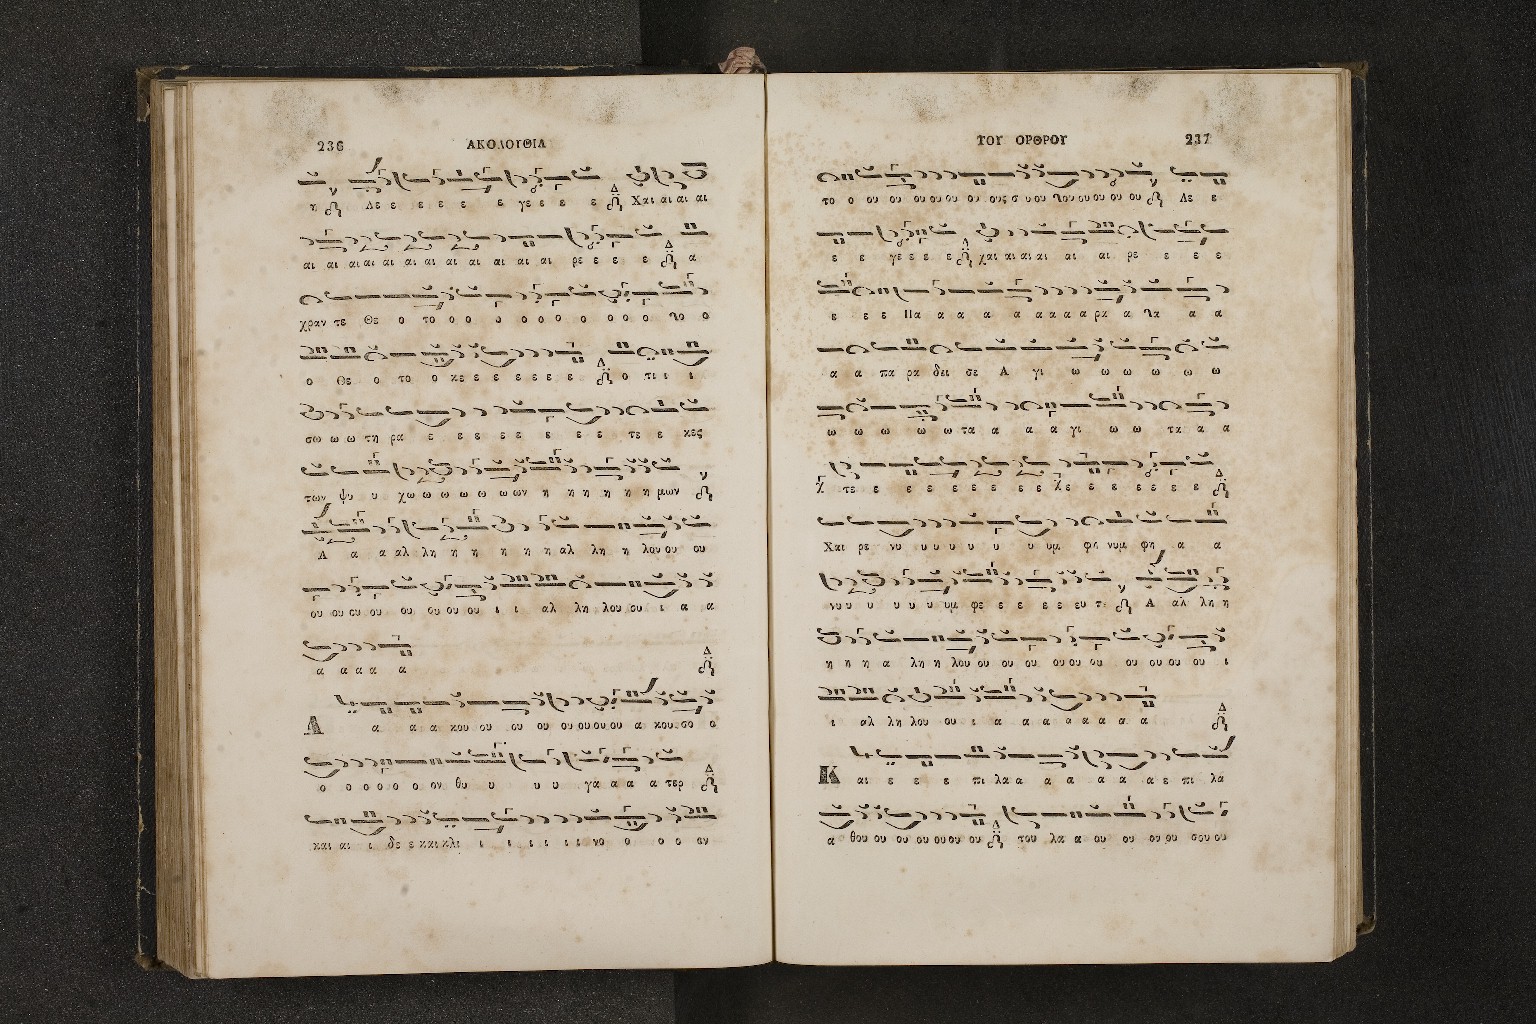 236 ΑΚΟΛΟΥΘΙΑ
η Λε ε ε ε ε ε γε ε ε ε Χαι αι αι αι
αι αι αι αι αι αι αι αι αι αι αι ρε ε ε ε α
χραν τε Θε ο το ο ο ο ο ο ο ο ο ο ο το ο
ο Θε ο το ο κε ε ε ε ε ε ε ο πι ι ι
σω ω ω τη ρα ε ε ε ε ε ε ε ε τε ε κες
των ψυ υ χω ω ω ω ω ω ων η η η η η η μων
Α α α αλ λη η η η η η αλ λη η λου ου ου
ου ου ου ου ου ου ου ου ι ι αλ λη λου ου ι α α
α α α α α
Α α α α κου ου ου ου ου ου ου ου α κου σο ο
ο ο ο ο ο ο ον θυ υ υ υ γα α α α τερ
και αι ι δε ε και κλι ι ι ι ι ι ι νο ο ο ο ον
ΤΟΥ ΟΡΘΡΟΥ 237
το ο ου ου ου ου ου ου ους σ ου του ου ου ου ου Λε ε
ε ε γε ε ε ε χαι αι αι αι αι αι ρε ε ε ε
ε ε ε Πα α α α α α α α ρα α τα α α
α α πα ρα δει σε Α γι ω ω ω ω ω ω
ω ω ω ω ω τα α α α γι ω ω τα α α
τε ε ε ε ε ε ε ε χε ε ε ε ε ε ε
Χαι ρε νυ υ υ υ υ υ υμ φη νυμ φη α α
νυ υ υ υ υ υ υμ φε ε ε ε ε ευ τε Α αλ λη η
η η η α λη η λου ου ου ου ου ου ου ου ου ου ου ι
ι αλ λη λου ου ι α α α α α α α α
Κ αι ε ε ε πι λα α α α α α α ε πι λα
α θου ου ου ου ου ου ου του λα α ου ου ου ου σου ου